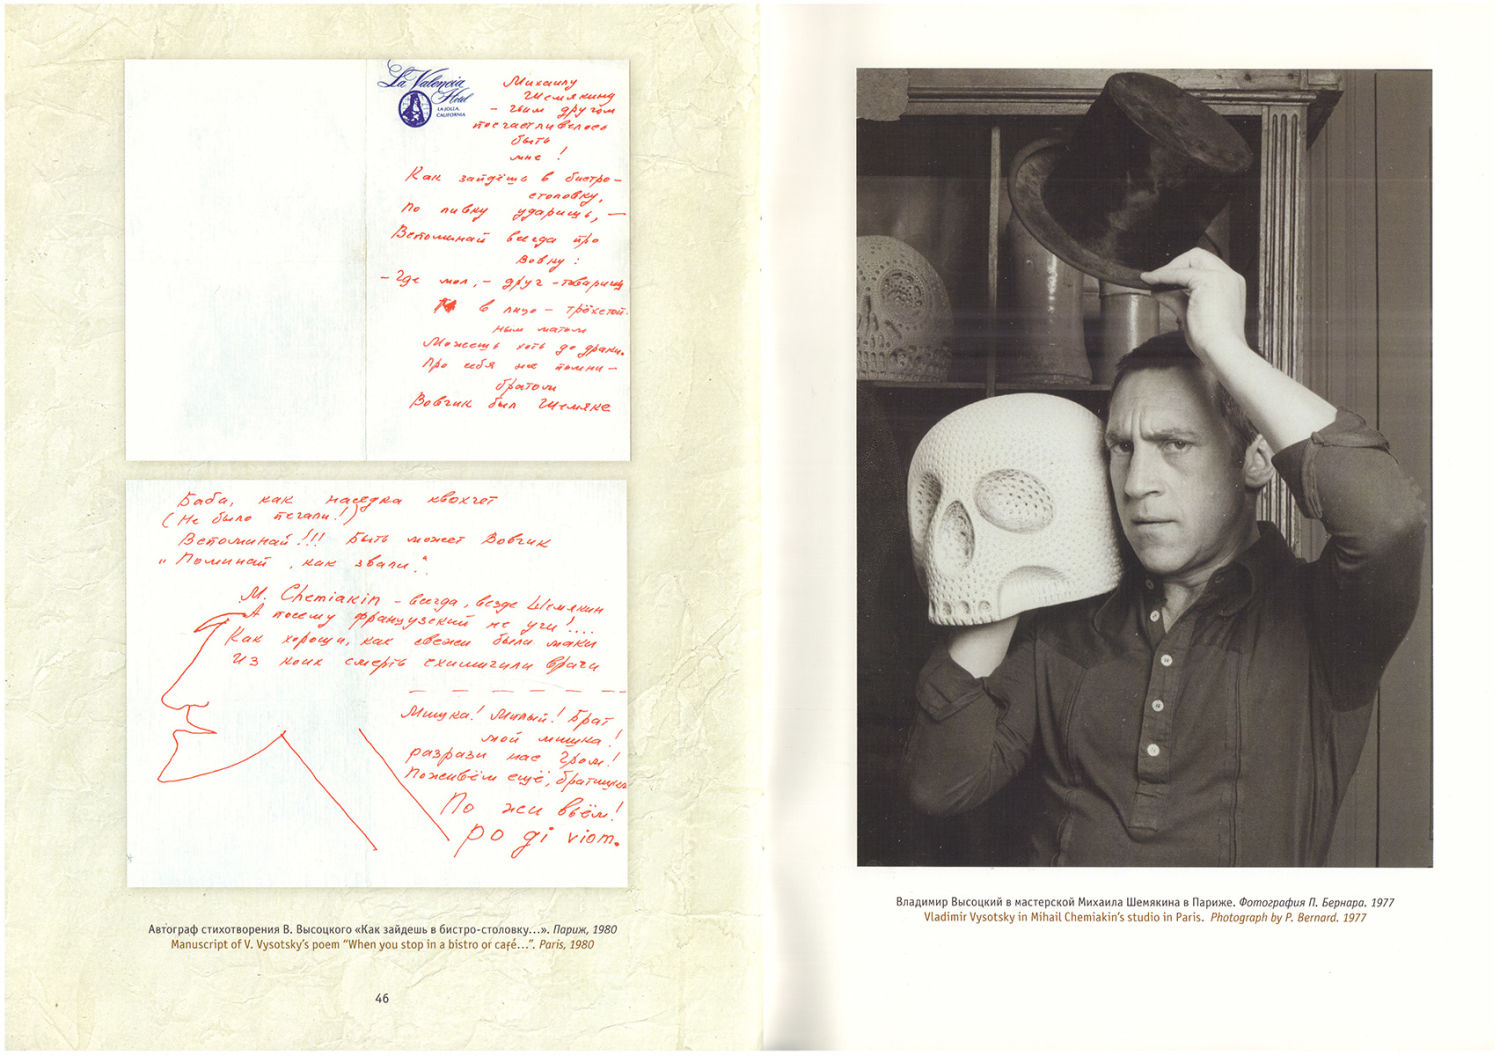 La Valencia
Hotel
LA JOLLA,
CALIFORNIA
Михаилу
Шемякину
- чьим другом
посчастливелось
быть
мне !
Как зайдёшь в бистро-
столовку,
По пивку ударишь, —
Вспоминай всегда про
Вовку :
- Где мол, - друг - товарищ
в лицо - трёхстой-
ным матом
Можешь хоть до драки.
Про себя же помни -
братом
Вовчик был Шемяке
Баба, как наседка квохчет
(Не было печали!)
Вспоминай!!! Быть может Вовчик
"Поминай, как звали".
M. Chemiakin - всегда, везде Шемякин
А посему французский не учи!....
Как хороши, как свежи были маки
Из коих смерть схимичили врачи
Мишка! Милый! Брат
мой мишка!
разрази нас Гром!
Поживём ещё, братишка
По жи вьём!
po gi viom.
Автограф стихотворения В. Высоцкого «Как зайдешь в бистро-столовку...». Париж, 1980
Manuscript of V. Vysotsky's poem “When you stop in a bistro or café...”. Paris, 1980
46
Владимир Высоцкий в мастерской Михаила Шемякина в Париже. Фотография П. Бернара. 1977
Vladimir Vysotsky in Mihail Chemiakin's studio in Paris. Photograph by P. Bernard. 1977